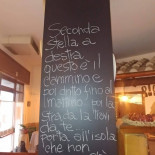 Seconda
stella a
destra
questo è il
cammino e
poi dritto fino al
mattino poi la
strada la trovi
da te
porta all'isola
che non